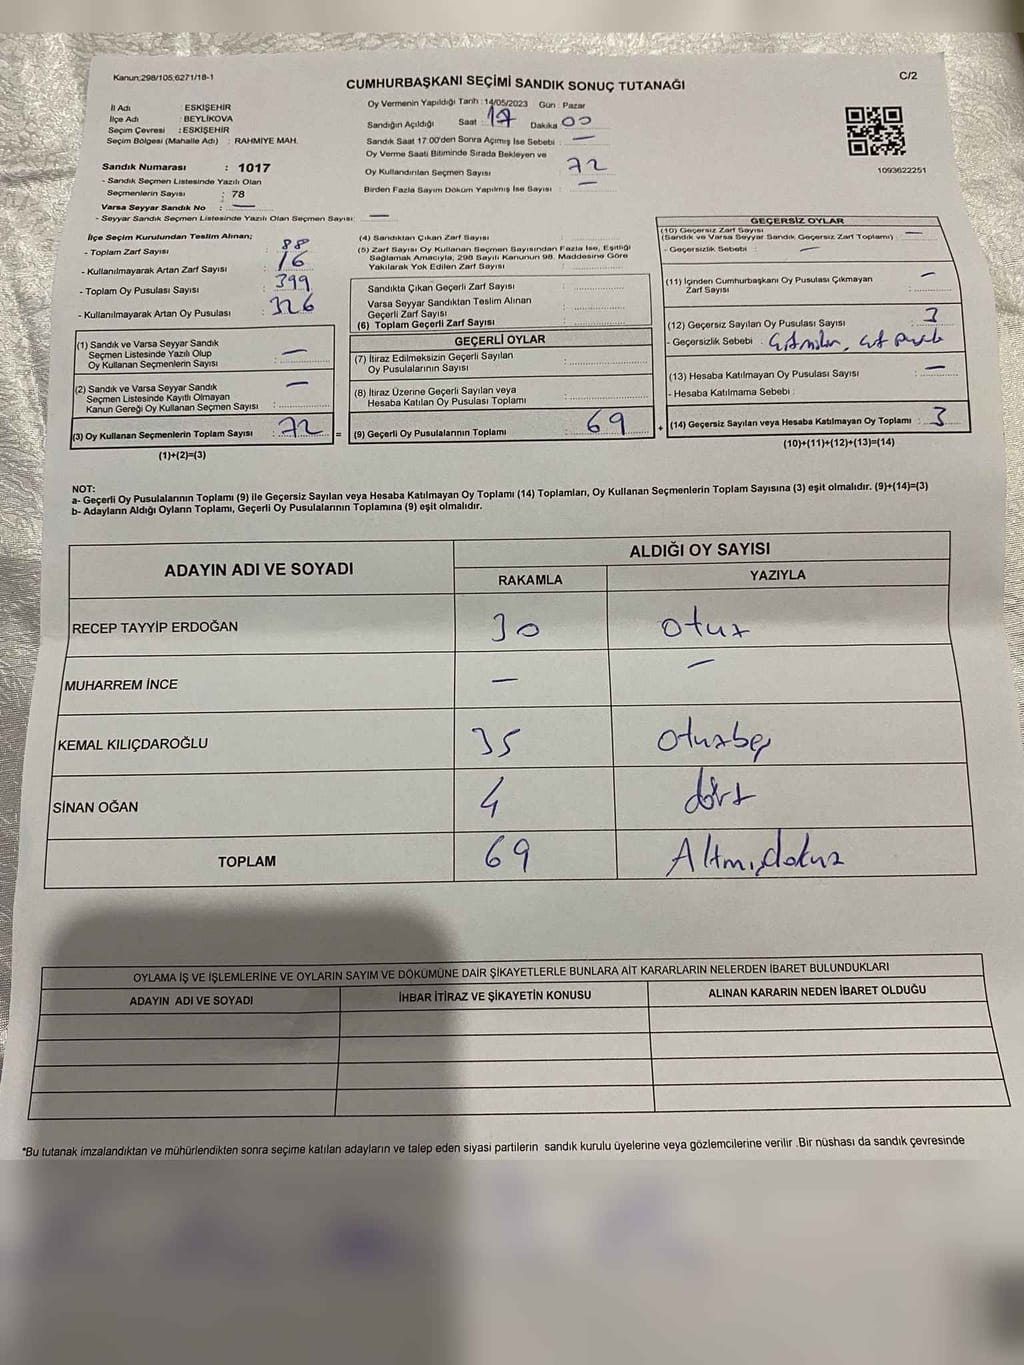 Kanun;298/105;6271/18-1
CUMHURBAŞKANI SEÇİMİ SANDIK SONUÇ TUTANAĞI
C/2
İl Adı : ESKİŞEHİR
İlçe Adı : BEYLİKOVA
Seçim Çevresi : ESKİŞEHİR
Seçim Bölgesi (Mahalle Adı) : RAHMIYE MAH.
Sandık Numarası : 1017
- Sandık Seçmen Listesinde Yazılı Olan
Seçmenlerin Sayısı : 78
Varsa Seyyar Sandık No : —
- Seyyar Sandık Seçmen Listesinde Yazılı Olan Seçmen Sayısı: —
Oy Vermenin Yapıldığı Tarih : 14/05/2023 Gün : Pazar
Sandığın Açıldığı Saat : 17 Dakika 00
Sandık Saat 17:00'den Sonra Açımış İse Sebebi : —
Oy Verme Saati Bitiminde Sırada Bekleyen ve
Oy Kullandırılan Seçmen Sayısı : 72
Birden Fazla Sayım Döküm Yapılmış İse Sayısı : —
1093622251
İlçe Seçim Kurulundan Teslim Alınan;
- Toplam Zarf Sayısı : 88
- Kullanılmayarak Artan Zarf Sayısı : 16
- Toplam Oy Pusulası Sayısı : 399
- Kullanılmayarak Artan Oy Pusulası : 326
(1) Sandık ve Varsa Seyyar Sandık
Seçmen Listesinde Yazılı Olup
Oy Kullanan Seçmenlerin Sayısı : —
(2) Sandık ve Varsa Seyyar Sandık
Seçmen Listesinde Kayıtlı Olmayan
Kanun Gereği Oy Kullanan Seçmen Sayısı : —
(3) Oy Kullanan Seçmenlerin Toplam Sayısı : 72 =
(1)+(2)=(3)
(4) Sandıktan Çıkan Zarf Sayısı :
(5) Zarf Sayısı Oy Kullanan Seçmen Sayısından Fazla İse, Eşitliği
Sağlamak Amacıyla, 298 Sayılı Kanunun 98. Maddesine Göre
Yakılarak Yok Edilen Zarf Sayısı :
Sandıkta Çıkan Geçerli Zarf Sayısı :
Varsa Seyyar Sandıktan Teslim Alınan
Geçerli Zarf Sayısı :
(6) Toplam Geçerli Zarf Sayısı :
GEÇERLİ OYLAR
(7) İtiraz Edilmeksizin Geçerli Sayılan
Oy Pusulalarının Sayısı :
(8) İtiraz Üzerine Geçerli Sayılan veya
Hesaba Katılan Oy Pusulası Toplamı :
(9) Geçerli Oy Pusulalarının Toplamı : 69 +
GEÇERSİZ OYLAR
(10) Geçersiz Zarf Sayısı
(Sandık ve Varsa Seyyar Sandık Geçersiz Zarf Toplamı) : —
- Geçersizlik Sebebi : —
(11) İçinden Cumhurbaşkanı Oy Pusulası Çıkmayan
Zarf Sayısı : —
(12) Geçersiz Sayılan Oy Pusulası Sayısı : 3
- Geçersizlik Sebebi :
(13) Hesaba Katılmayan Oy Pusulası Sayısı : —
- Hesaba Katılmama Sebebi :
(14) Geçersiz Sayılan veya Hesaba Katılmayan Oy Toplamı : 3
(10)+(11)+(12)+(13)=(14)
NOT:
a- Geçerli Oy Pusulalarının Toplamı (9) ile Geçersiz Sayılan veya Hesaba Katılmayan Oy Toplamı (14) Toplamları, Oy Kullanan Seçmenlerin Toplam Sayısına (3) eşit olmalıdır. (9)+(14)=(3)
b- Adayların Aldığı Oyların Toplamı, Geçerli Oy Pusulalarının Toplamına (9) eşit olmalıdır.
ADAYIN ADI VE SOYADI
ALDIĞI OY SAYISI
RAKAMLA YAZIYLA
RECEP TAYYİP ERDOĞAN 30 otuz
MUHARREM İNCE — —
KEMAL KILIÇDAROĞLU 35 otuzbeş
SİNAN OĞAN 4 dört
TOPLAM 69 Altmışdokuz
OYLAMA İŞ VE İŞLEMLERİNE VE OYLARIN SAYIM VE DÖKÜMÜNE DAİR ŞİKAYETLERLE BUNLARA AİT KARARLARIN NELERDEN İBARET BULUNDUKLARI
ADAYIN ADI VE SOYADI İHBAR İTİRAZ VE ŞİKAYETİN KONUSU ALINAN KARARIN NEDEN İBARET OLDUĞU
*Bu tutanak imzalandıktan ve mühürlendikten sonra seçime katılan adayların ve talep eden siyasi partilerin sandık kurulu üyelerine veya gözlemcilerine verilir .Bir nüshası da sandık çevresinde